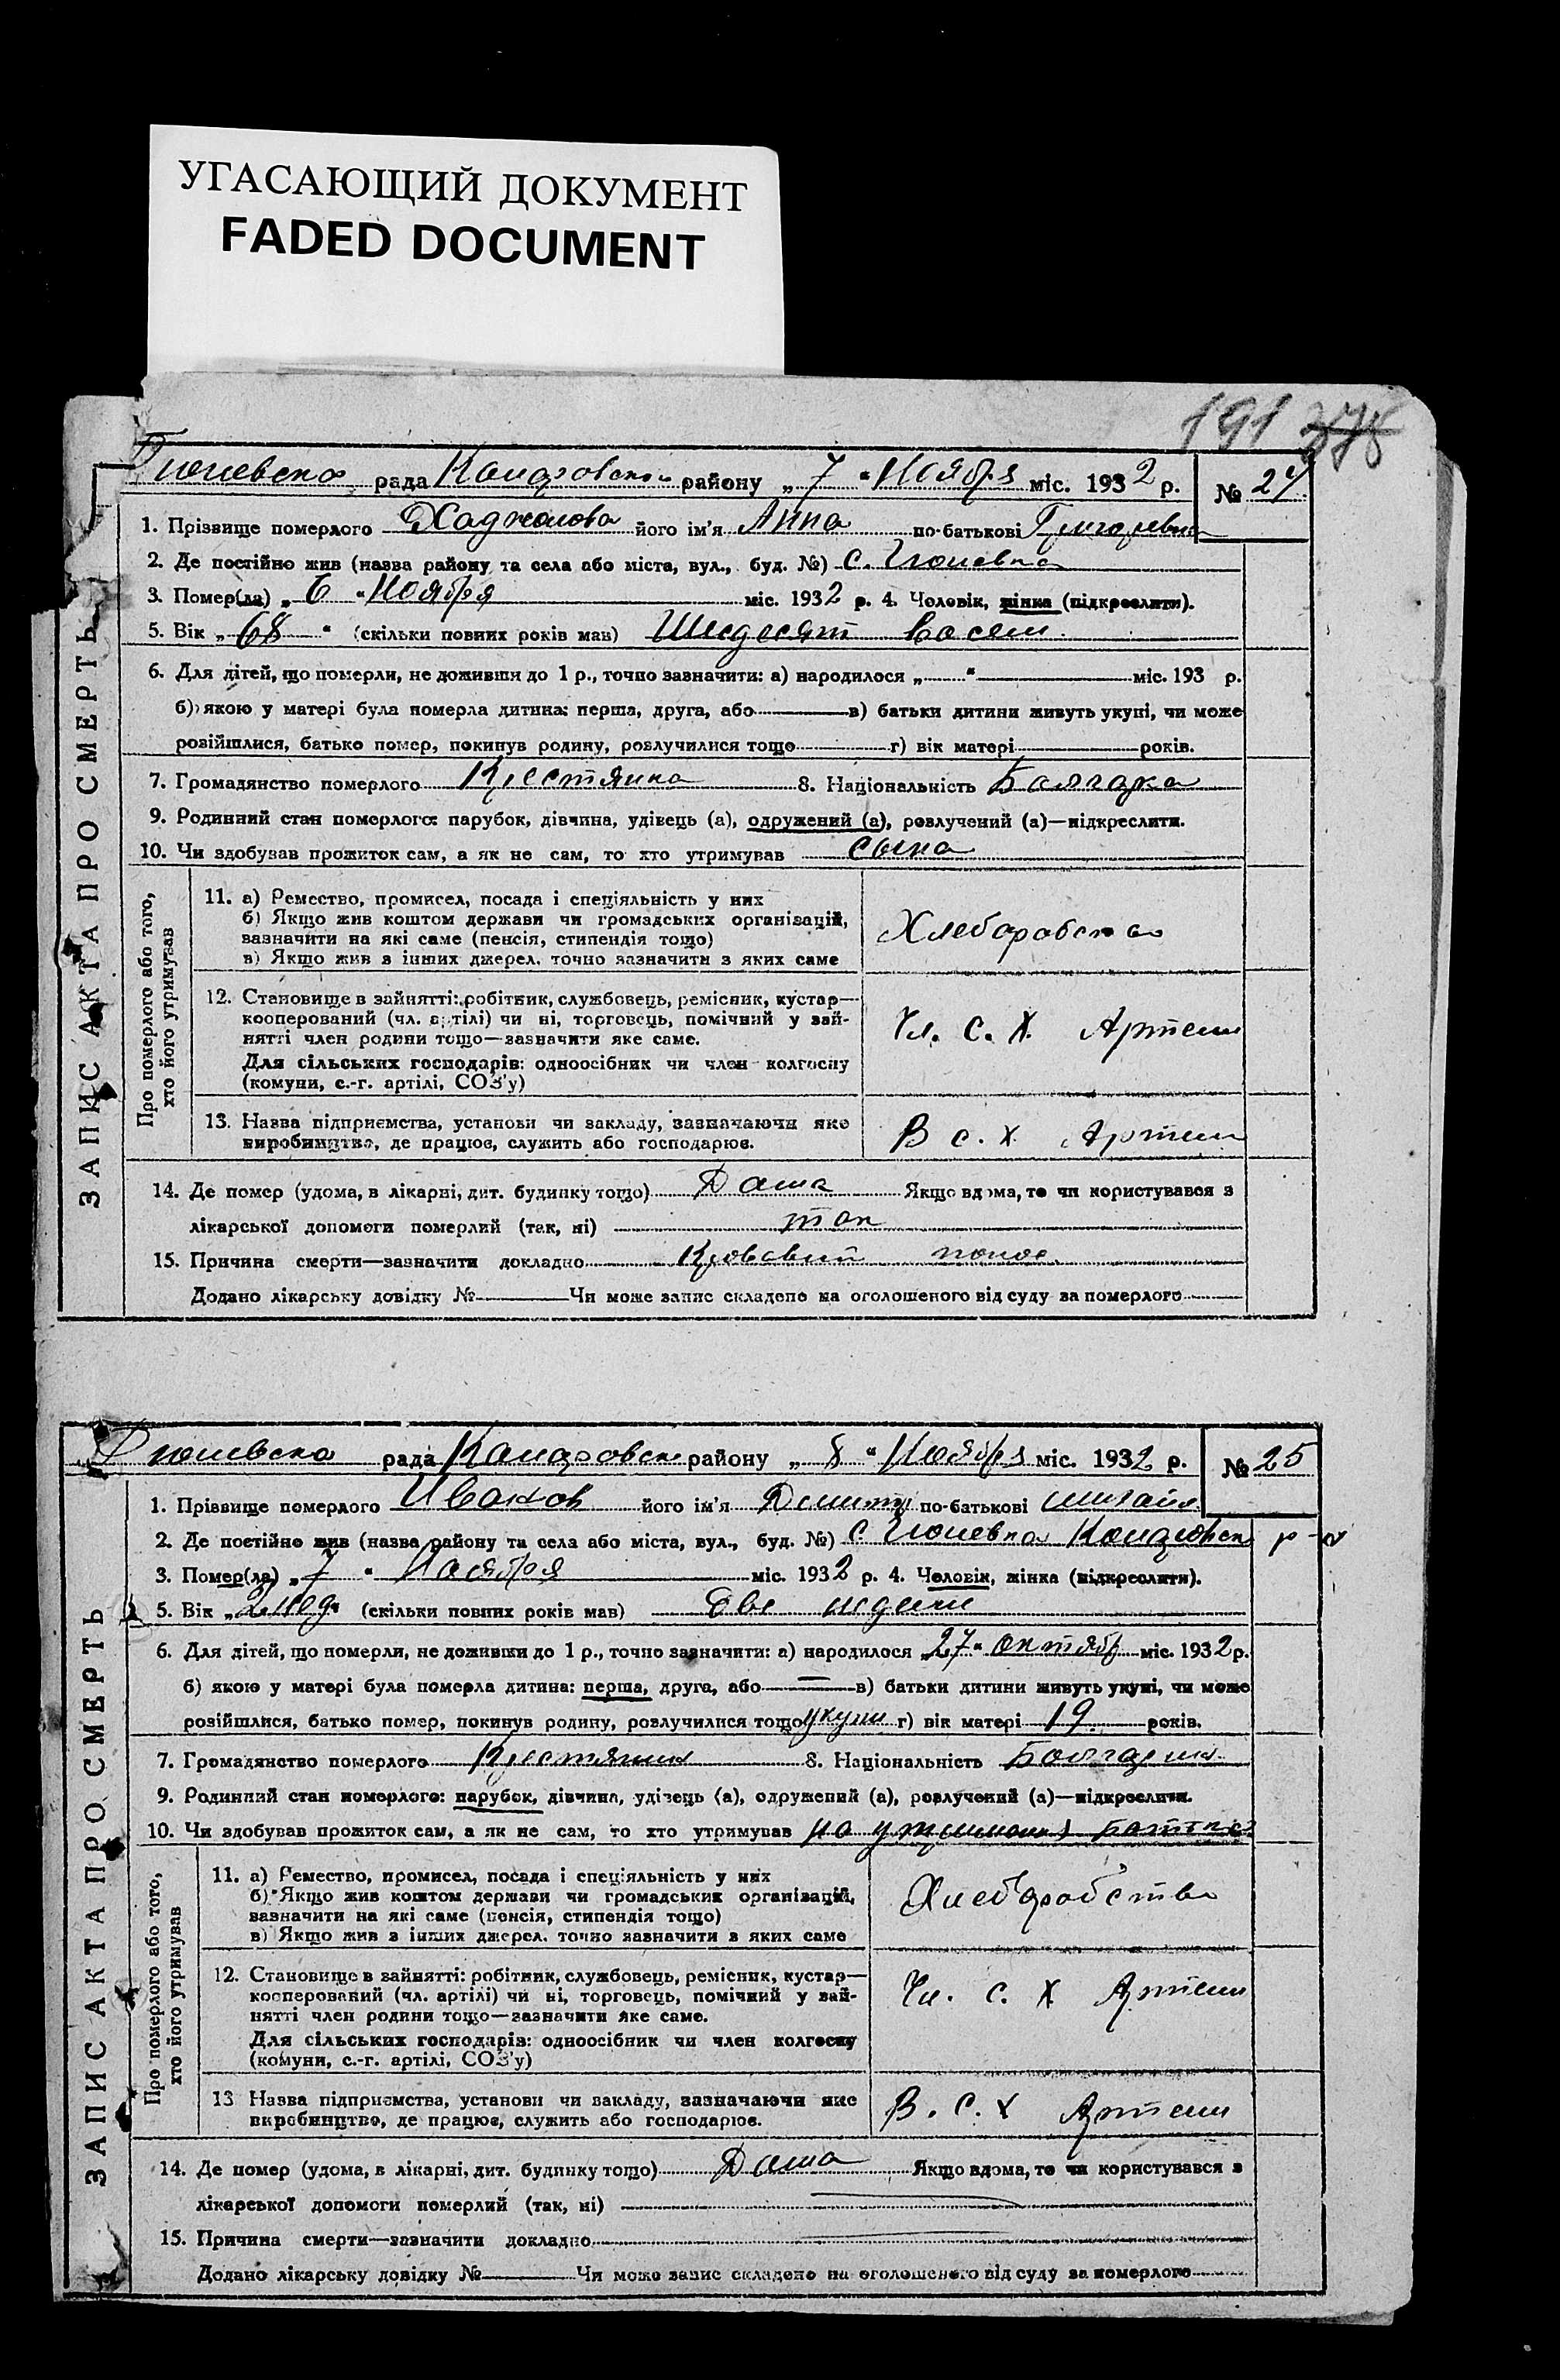 УГАСАЮЩИЙ ДОКУМЕНТ
FADED DOCUMENT
191 378
ЗАПИС АКТА ПРО СМЕРТЬ
рада района „ 7 “ Ноября міс. 1932 р. № 24
1. Прізвище померлого його ім'я Анна по-батькові Григорьевна
2. Де постійно жив (назва району та села або міста, вул., буд. №) с.
3. Помер(ла) „ 6 “ Ноября міс. 1932 р. 4. Чоловік, жінка (підкреслити).
5. Вік „ 68 “ (скільки повних років мав) Шесдесят восем
6. Для дітей, що померли, не доживши до 1 р., точно зазначити: а) народилося „ “ міс. 193 р.
б) якою у матері була померла дитина: перша, друга, або в) батьки дитини живуть укупі, чи може
розійшлися, батько помер, покинув родину, розлучилися тощо г) вік матері років.
7. Громадянство померлого Крестянка 8. Національність Болгарка
9. Родинний стан померлого: парубок, дівчина, удівець (а), одружений (а), розлучений (а)—підкреслити.
10. Чи здобував прожиток сам, а як не сам, то хто утримував сына
Про померлого або того,
хто його утримував
11. а) Ремество, промисел, посада і спеціяльність у них
б) Якщо жив коштом держави чи громадських організацій,
зазначити на які саме (пенсія, стипендія тощо)
в) Якщо жив з інших джерел, точно зазначити з яких саме
12. Становище в зайнятті: робітник, службовець, ремісник, кустар—
кооперований (чл. артілі) чи ні, торговець, помічний у зай-
нятті член родини тощо—зазначити яке саме.
Для сільських господарів: одноосібник чи член колгоспу
(комуни, с.-г. артілі, СОЗ'у)
Чл. с. х. Артели
13. Назва підприємства, установи чи закладу, зазначаючи яке
виробництво, де працює, служить або господарює.
В с. х. Артели
14. Де помер (удома, в лікарні, дит. будинку тощо) Дома Якщо вдома, то чи користувався з
лікарської допомоги померлий (так, ні) так
15. Причина смерти—зазначити докладно Кровавый понос
Додано лікарську довідку № Чи може запис складено на оголошеного від суду за померлого
ЗАПИС АКТА ПРО СМЕРТЬ
рада району „ 8 “ Ноября міс. 1932 р. № 25
1. Прізвище померлого його ім'я по-батькові
2. Де постійно жив (назва району та села або міста, вул., буд. №) с. р-на
3. Помер(ла) „ 7 “ Ноября міс. 1932 р. 4. Чоловік, жінка (підкреслити).
5. Вік „ 2 нед “ (скільки повних років мав) Две недели
6. Для дітей, що померли, не доживши до 1 р., точно зазначити: а) народилося „ 27 “ октябр міс. 1932 р.
б) якою у матері була померла дитина: перша, друга, або в) батьки дитини живуть укупі, чи може
розійшлися, батько помер, покинув родину, розлучилися тощо укупи г) вік матері 19 років.
7. Громадянство померлого Крестянин 8. Національність Болгарин
9. Родинний стан померлого: парубок, дівчина, удівець (а), одружений (а), розлучений (а)—підкреслити.
10. Чи здобував прожиток сам, а як не сам, то хто утримував на
Про померлого або того,
хто його утримував
11. а) Ремество, промисел, посада і спеціяльність у них
б) Якщо жив коштом держави чи громадських організацій,
зазначити на які саме (пенсія, стипендія тощо)
в) Якщо жив з інших джерел, точно зазначити з яких саме
Хлеборобство
12. Становище в зайнятті: робітник, службовець, ремісник, кустар—
кооперований (чл. артілі) чи ні, торговець, помічний у зай-
нятті член родини тощо—зазначити яке саме.
Для сільських господарів: одноосібник чи член колгоспу
(комуни, с.-г. артілі, СОЗ'у)
Чл. с. х Артели
13 Назва підприємства, установи чи закладу, зазначаючи яке
виробництво, де працює, служить або господарює.
В. с. х Артели
14. Де помер (удома, в лікарні, дит. будинку тощо) Дома Якщо вдома, то чи користувався з
лікарської допомоги померлий (так, ні)
15. Причина смерти—зазначити докладно
Додано лікарську довідку № Чи може запис складено на оголошеного від суду за померлого